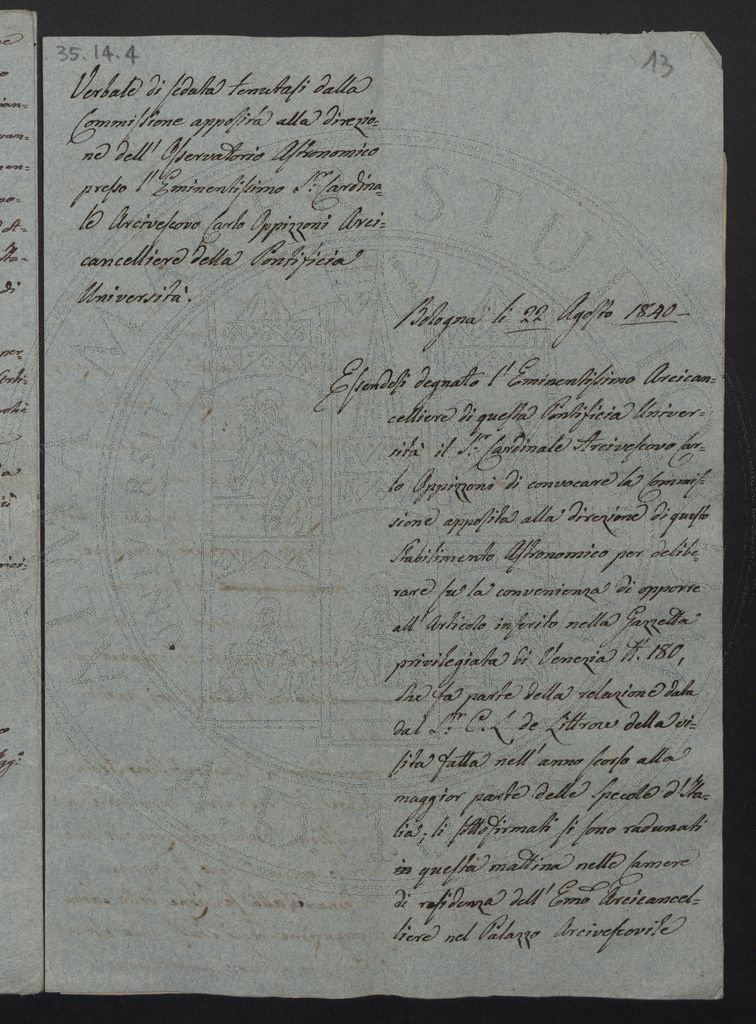 35.14.4
13
Verbale di seduta tenutasi dalla
Commissione apposita alla direzio=
ne dell' Osservatorio Astronomico
presso l' Eminentissimo S.r Cardina=
le Arcivescovo Carlo Oppizzoni Arci=
cancelliere della Pontificia
Università.
Bologna li 22 Agosto 1840
Essendosi degnato l' Eminentissimo Arcican=
celliere di questa Pontificia Univer=
sità il S.r Cardinale Arcivescovo Car=
lo Oppizzoni di convocare la Commis=
sione apposita alla direzione di questo
Stabilimento Astronomico per delibe=
rare su la convenienza di opporre
all' Articolo inserito nella Gazzetta
privilegiata di Venezia N. 180,
che fa parte della relazione data
dal S.r C. L. de Littrow della vi=
sita fatta nell' anno scorso alla
maggior parte delle Specole d' Ita=
lia; li sottofirmati si sono radunati
in questa mattina nelle Camere
di residenza dell' Emo Arcicancel=
liere nel Palazzo Arcivescovile